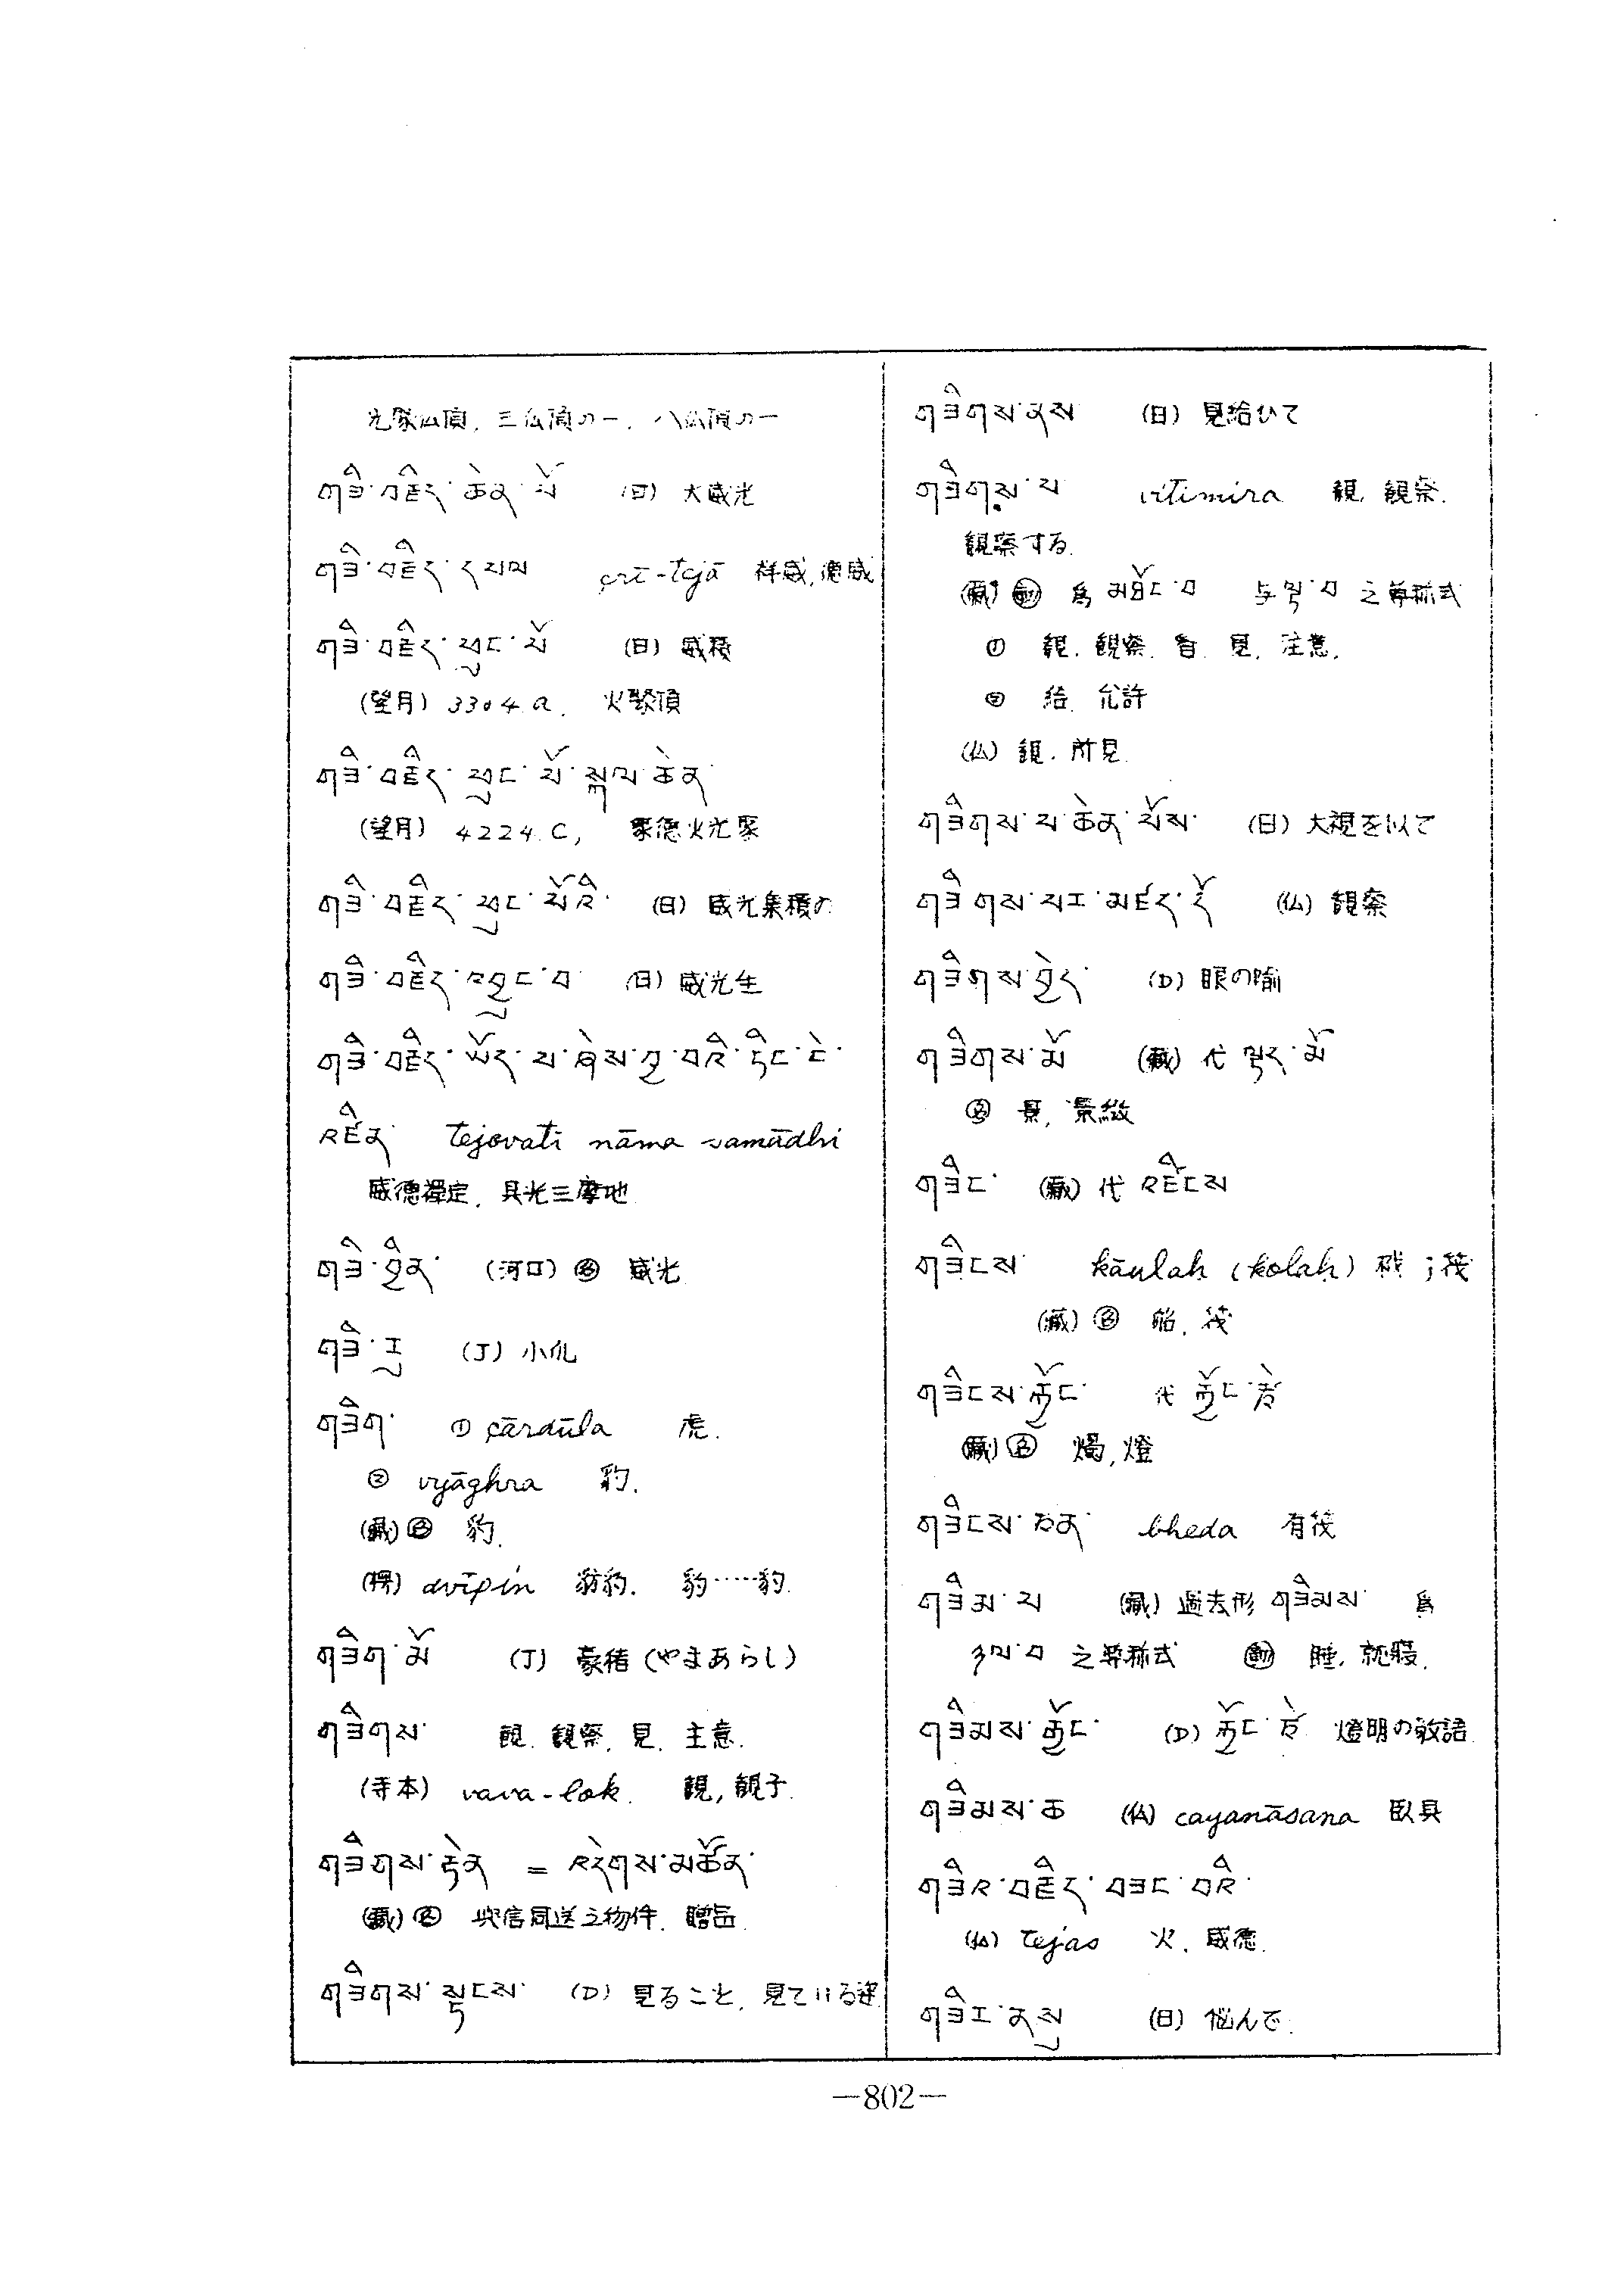 光聚仏頂, 三仏頂の一, 八仏頂の一
གཟི་བརྗིད་ཆེན་པོ (日) 大威光
གཟི་བརྗིད་དཔལ çrī-tejā 祥威, 徳威
གཟི་བརྗིད་ཕུང་པོ (日) 威積
(望月) 3304.a, 火聚頂
གཟི་བརྗིད་ཕུང་པོ་སྐལ་ཆེན
(望月) 4224.C, 聚徳火光聚
གཟི་བརྗིད་ཕུང་པོའི་ (日) 威光集積の
གཟི་བརྗིད་འབྱུང་བ (日) 威光生
གཟི་བརྗིད་ཡོད་པ་ཞེས་བྱ་བའི་ཏིང་ངེ་
འཛིན tejovati nāma samādhi
威徳禪定, 具光三摩地
གཟི་བྱིན་ (河口) 名 威光
གཟི་ (J) 小仏
གཟིག་ ① çārdūla 虎.
② vyāghra 豹.
(藏) 名 豹.
dvīpin 豹. 豹……豹.
གཟིག་མོ (J) 豪猪 (やまあらし)
གཟིགས་ 観. 観察. 見. 主意.
(寺本) vava-lok. 観, 観予.
གཟིགས་རྟེན = འདེགས་མཚོན་
(藏) 名 與信同送之物件. 贈品.
གཟིགས་སྟངས་ (D) 見ること, 見ている
གཟིགས་ནས (日) 見給ひて
གཟིགས་པ vitimira 観, 観察.
観察する.
(藏) 動 為 མཐོང་བ 与 ལྟ་བ 之尊称式
① 観. 観察. 看. 見. 注意.
② 給. 允許
(仏) 観. 所見.
གཟིགས་པ་ཆེན་པོས་ (日) 大視を以て
གཟིགས་པར་མཛད་དོ (仏) 観察
གཟིགས་བྱེད་ (D) 眼の喻
གཟིགས་མོ (藏) 代 ལྟད་མོ
名 景, 景緻
གཟིང་ (藏) 代 འཛིངས
གཟིངས kāulaḥ (kolaḥ) 栰; 筏
(藏) 名 船, 筏
གཟིངས་ཀྱོང་ 代
(藏) 名 燭, 燈
གཟིངས་ཅན་ bheda 有筏
གཟིམ་པ (藏) 過去形 གཟིམས་ 為
ཉལ་བ 之尊称式 動 睡, 就寢.
གཟིམས་ཀྱོང་ (D) 燈明の敬語
གཟིམས་ཆ (仏) çayanāsana 臥具
གཟིའ་བརྗིད་བཟང་བའི་
(仏) tejas 火, 威徳.
གཟིར་ནས (日) 悩んで.
—802—